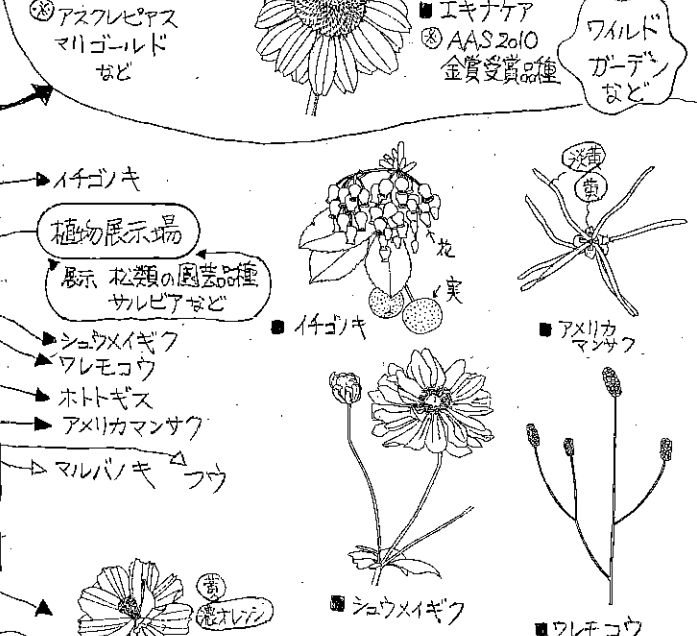 ※アスクレピアス
マリゴールド
など
■エキナケア
※AAS2010
金賞受賞品種
ワイルド
ガーデン
など
イチゴノキ
植物展示場
展示 松類の園芸品種
サルビアなど
シュウメイギク
ワレモコウ
ホトトギス
アメリカマンサク
マルバノキ
フウ
花
実
■イチゴノキ
淡黄
黄
■アメリカ
マンサク
黄
濃オレンジ
■シュウメイギク
■ワレモコウ